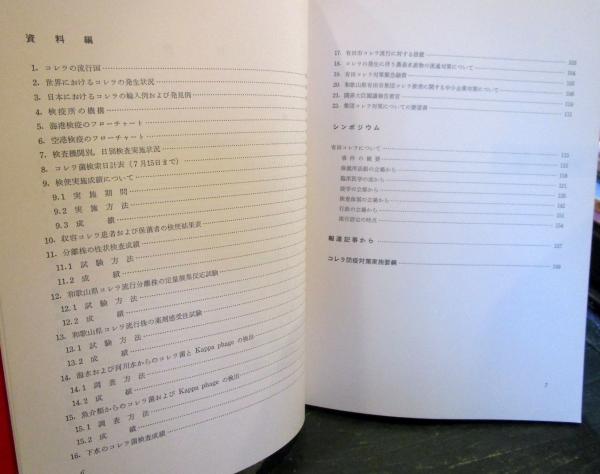 資料編
1. コレラの流行国
2. 世界におけるコレラの発生状況
3. 日本におけるコレラの輸入例および発見例
4. 検疫所の機構
5. 海港検疫のフローチャート
6. 空港検疫のフローチャート
7. 検査機関別，日別検査実施状況
8. コレラ菌検索日計表（7月15日まで）
9. 検便実施成績について
9.1 実施期間
9.2 実施方法
9.3 成績
10. 収容コレラ患者および保菌者の検便結果表
11. 分離株の性状検査成績
11.1 試験方法
11.2 成績
12. 和歌山県コレラ流行分離株の定量凝集反応試験
12.1 試験方法
12.2 成績
13. 和歌山県コレラ流行株の薬剤感受性試験
13.1 試験方法
13.2 成績
14. 海水および河川水からのコレラ菌と Kappa phage の検出
14.1 調査方法
14.2 成績
15. 魚介類からのコレラ菌および Kappa phage の検出
15.1 調査方法
15.2 成績
16. 下水のコレラ菌検査成績
6
17. 有田市コレラ流行に対する措置
18. コレラの発生に伴う農畜水産物の流通対策について
19. 有田コレラ対策緊急融資
20. 和歌山県有田市集団コレラ被害に関する中小企業対策について
21. 関係大臣閣議報告要旨
22. 集団コレラ対策についての要望書
シンポジウム
有田コレラについて
事件の概要
保健所活動の立場から
臨床医学の面から
疫学の立場から
検査体制の立場から
行政の立場から
報道記事から
コレラ防疫対策実施要綱
7